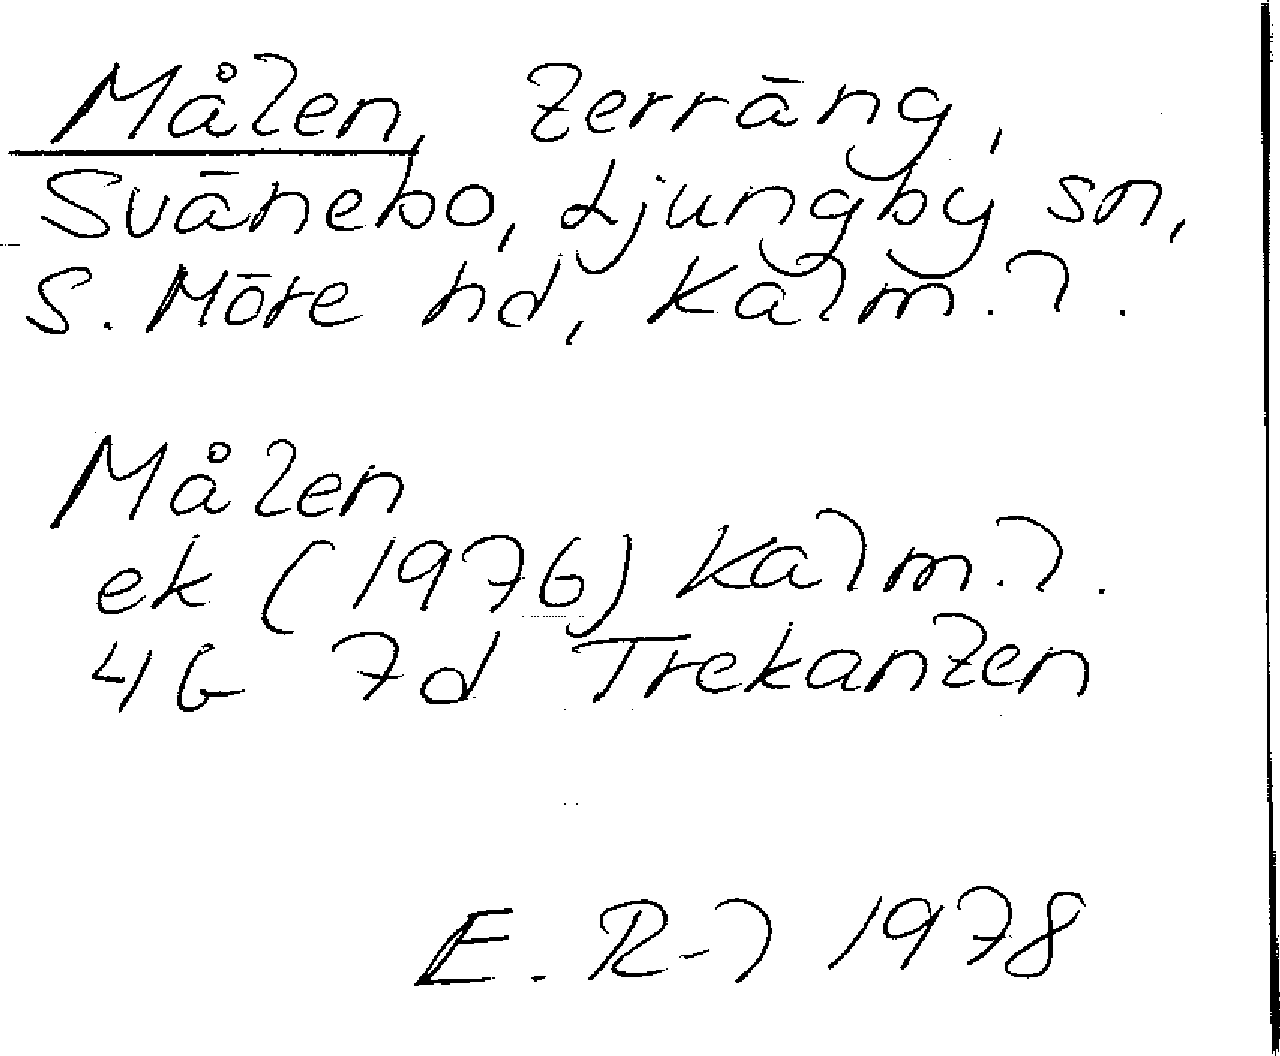 Målen, terräng,
Svänebo, Ljungby sn,
S. Möre hd, Kalm. l.
Målen
ek (1976) Kalm. l.
4G 7d Trekanten
E. R-l 1978